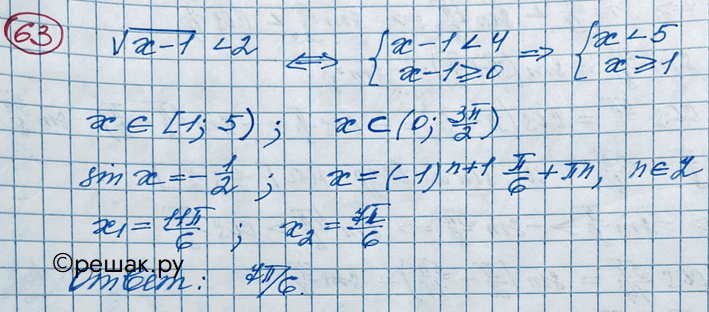 63 √x-1 < 2 ⟺ { x-1 < 4 x-1 ≥ 0 ⟹ { x < 5 x ≥ 1
x ∈ [1; 5) ; x ⊂ (0; 3π/2)
sin x = -1/2 ; x = (-1)^{n+1} π/6 + πn, n ∈ Z
x₁ = 11π/6 ; x₂ = 7π/6
©решак.ру
Ответ: 7π/6.